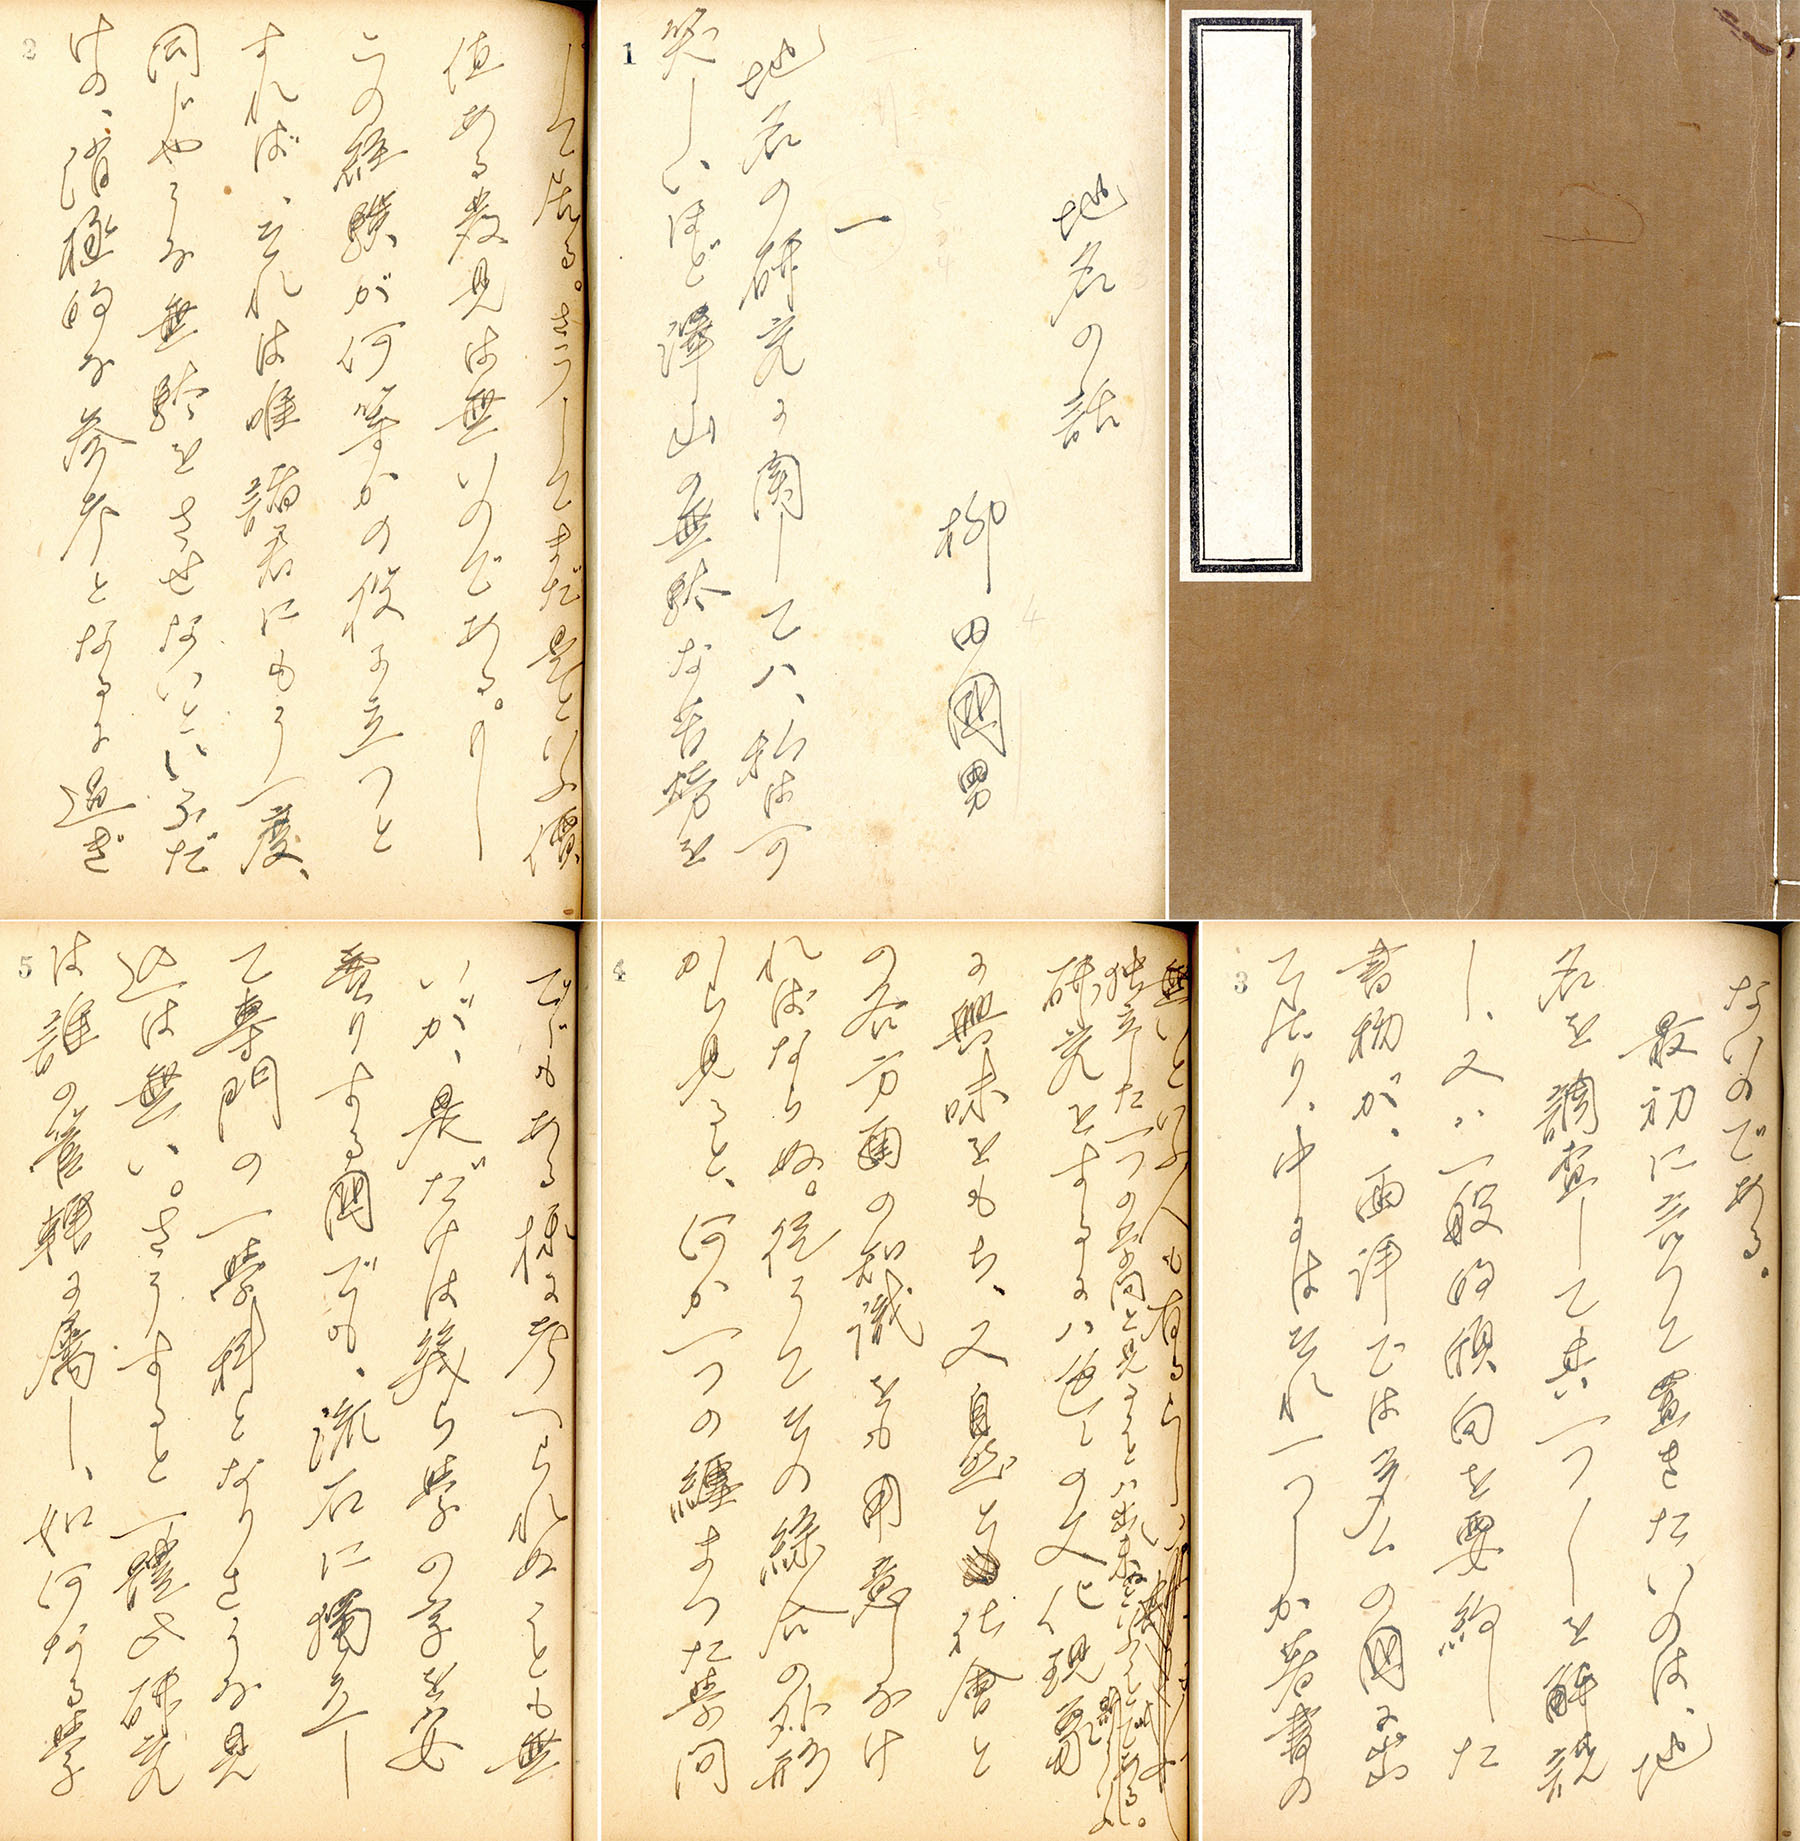 地名の話
柳田國男
一
地名の研究に関しては、私は可
笑しいほど澤山の無駄な苦労を
1
して居る。さうしてまだ是といふ價
値ある発見は無いのである。もし
この経験が何等かの役に立つと
すれば、それは唯諸君にもう一度、
同じやうな無駄をさせないといふだ
けの、消極的な参考となるに過ぎ
2
ないのである。
最初に言つて置きたいのは、地
名を調査して其一つ一つを解説
し、又は一般的傾向を要約した
書物が、西洋では多くの國に出
て居り、中にはそれ一つしか著書の
3
無いといふ人も有るらしい
独立した一つの学問と見ることは出来ない
研究をするには色々の文化現象
に興味をもち、又自然と社会と
の各方面の知識をも用意しなけ
ればならぬ。従つてその綜合の外形
から見ると、何か一つの纏まつた学問
4
でもある様に考へられぬことも無
いが、是だけは幾ら学の字を安
売りする國でも、流石に獨立し
て専門の一学科となりさうな見
込は無い。さうすると一體此研究
は誰の管轄に属し、如何なる学
5